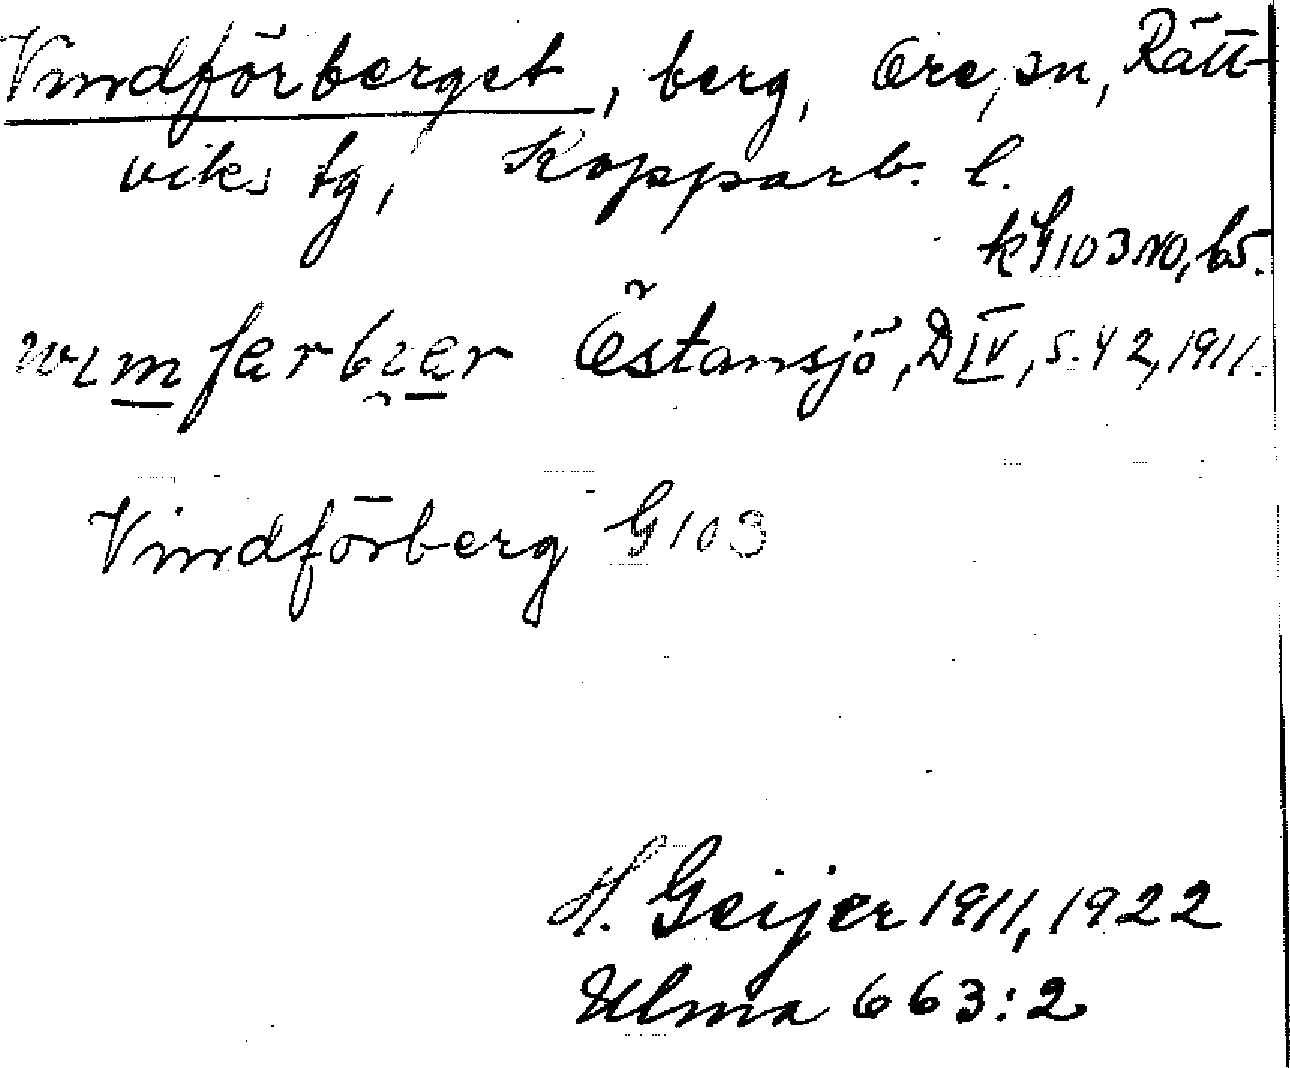 Vindförberget, berg, Ore, sn, Rätt-
viks tg, Kopparb. l.
k G103 NO, b5.
wımfærbıær Östansjö, D IV, s. 42, 1911.
Vindförberg G103
H. Geijer 1911, 1922
Ulma 663:2